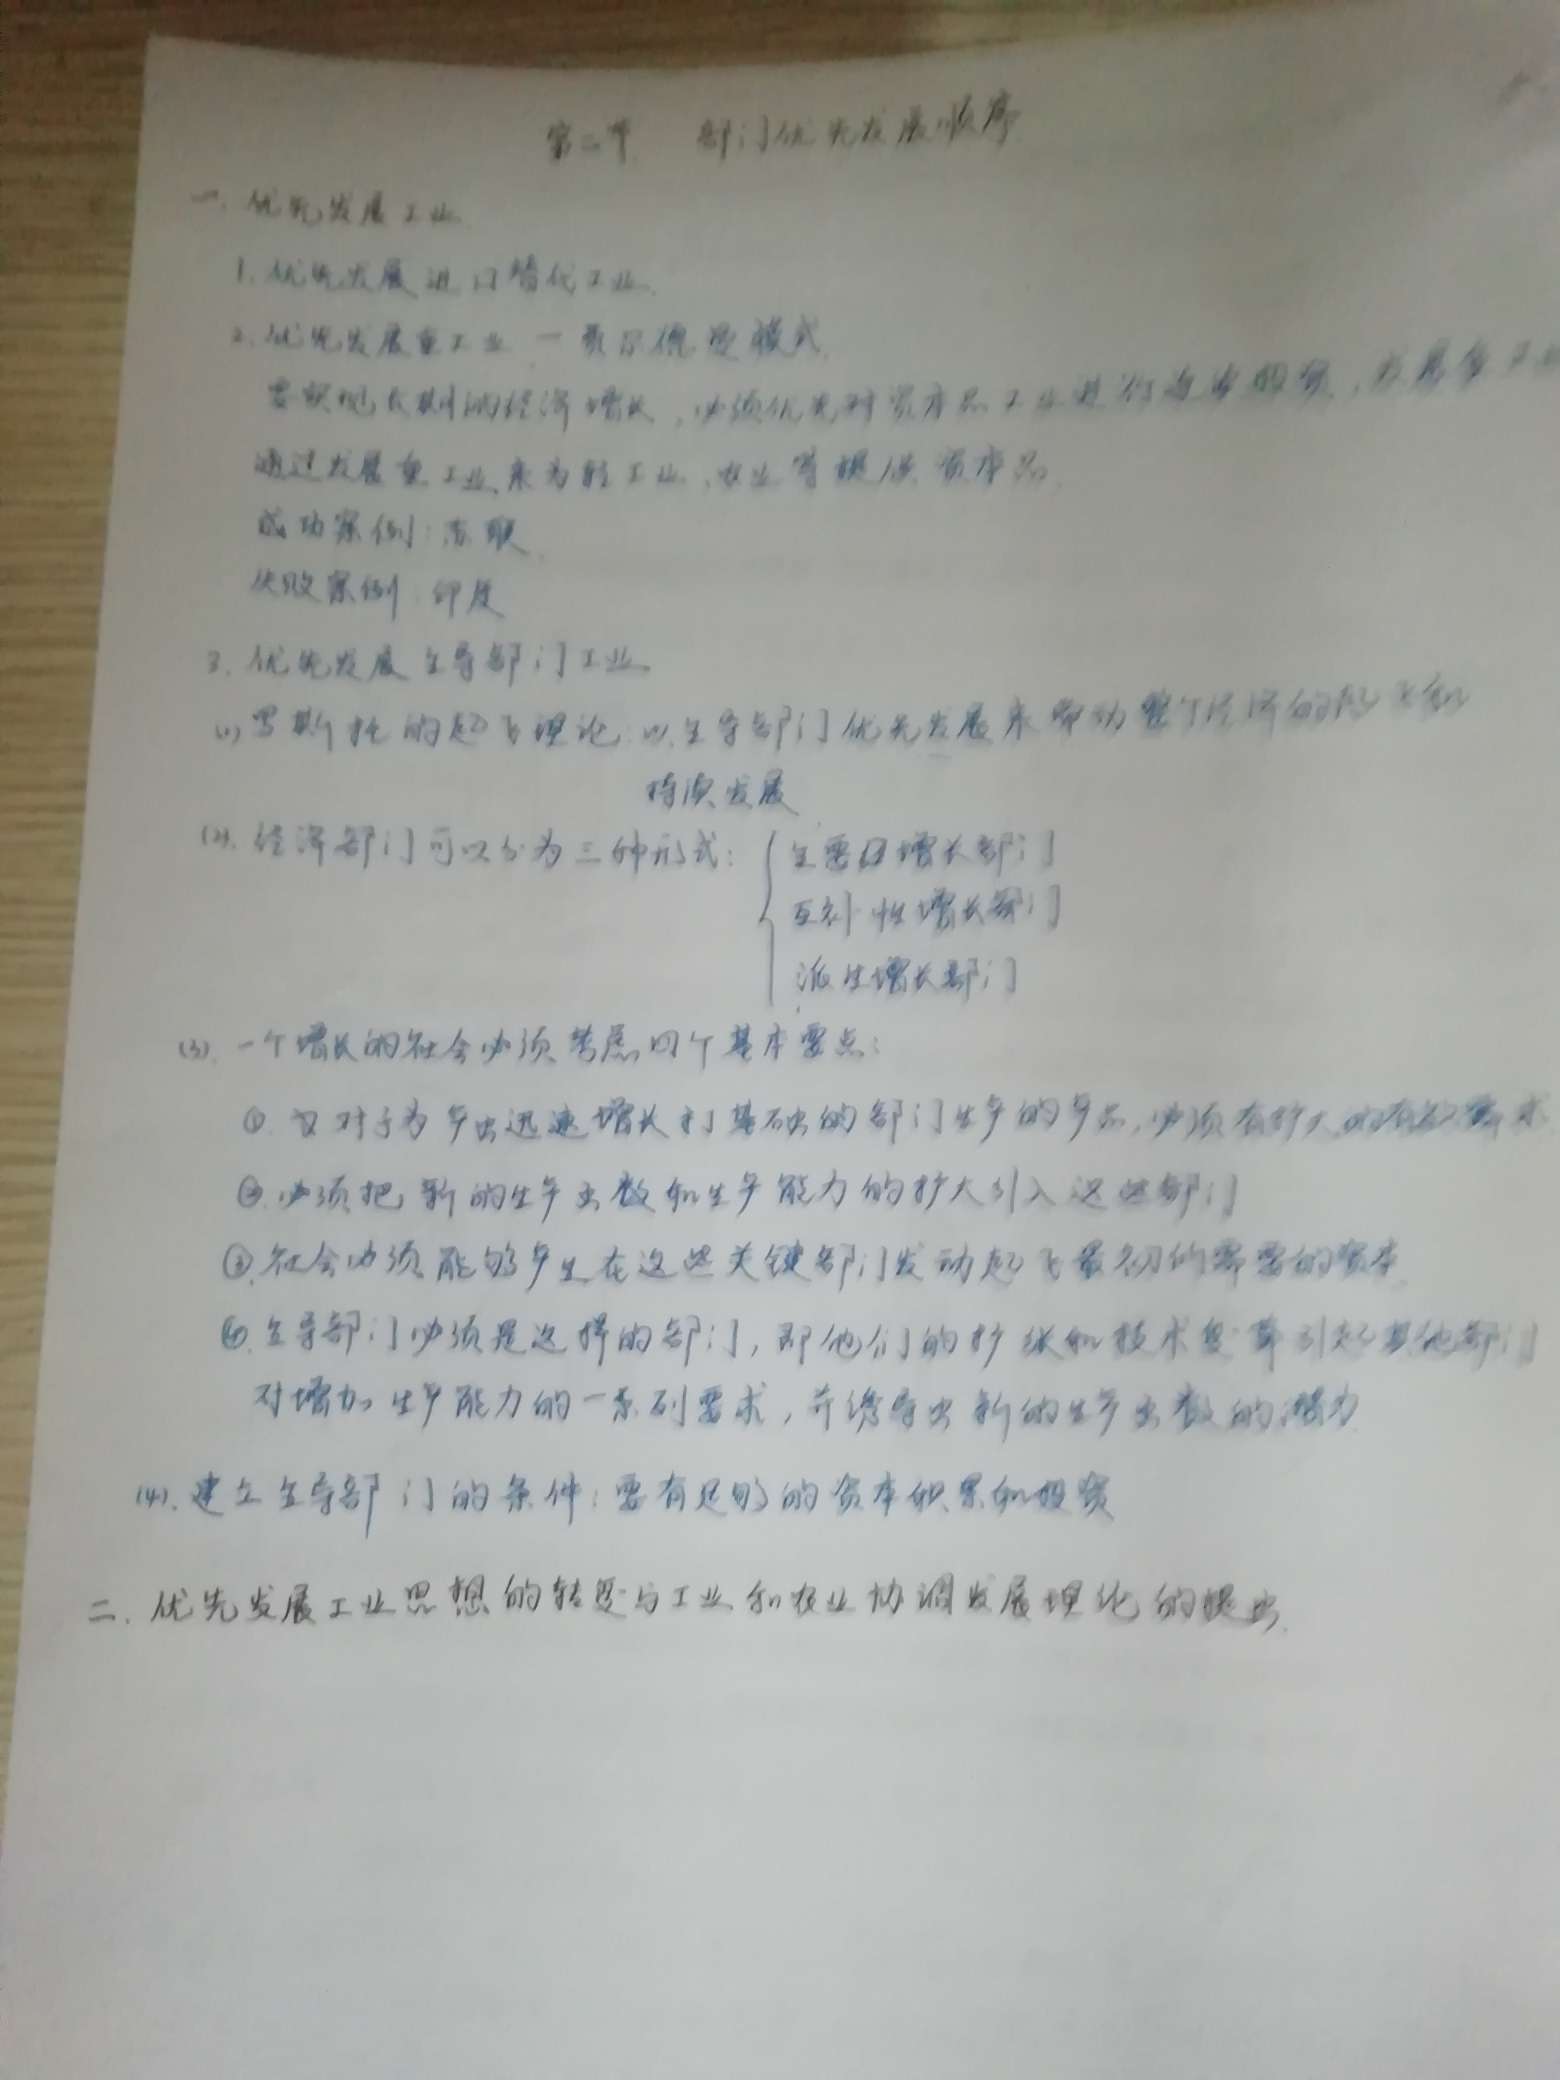 第二节 部门优先发展顺序
一. 优先发展工业
1. 优先发展进口替代工业.
2. 优先发展重工业 — 模式.
要实现长期的经济增长,必须优先对资本品工业进行
通过发展重工业来为轻工业、农业等提供资本品.
成功案例:苏联.
失败案例:印度
3. 优先发展主导部门工业.
(1) 罗斯托的起飞理论:以主导部门优先发展来带动整个经济的起飞和
持续发展
(2). 经济部门可以分为三种形式: 主要增长部门
互补性增长部门
派生增长部门
(3). 一个增长的社会必须考虑四个基本要点:
①. 对于为产出迅速增长打基础的部门生产的产品,必须有扩大的有效需求
②. 必须把新的生产函数和生产能力的扩大引入这些部门
③. 社会必须能够产生在这些关键部门发动起飞最初所需要的资本
④. 主导部门必须是这样的部门,即他们的扩张和技术变革引起其他部门
对增加生产能力的一系列要求,并诱导出新的生产函数的潜力
(4). 建立主导部门的条件:要有足够的资本积累和投资
二. 优先发展工业思想的转变与工业和农业协调发展理论的提出.